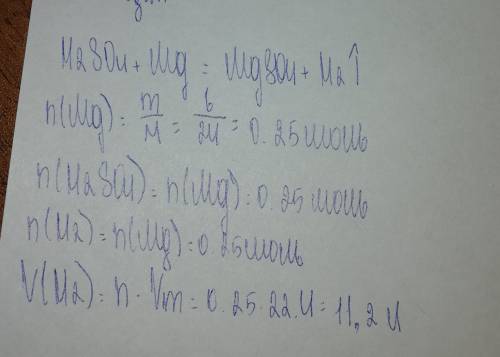 H2SO4 + Mg = MgSO4 + H2↑
n(Mg) = m/M = 6/24 = 0.25 моль
n(H2SO4) = n(Mg) = 0.25 моль
n(H2) = n(Mg) = 0.25 моль
V(H2) = n · Vm = 0.25 · 22.4 = 11,2 л